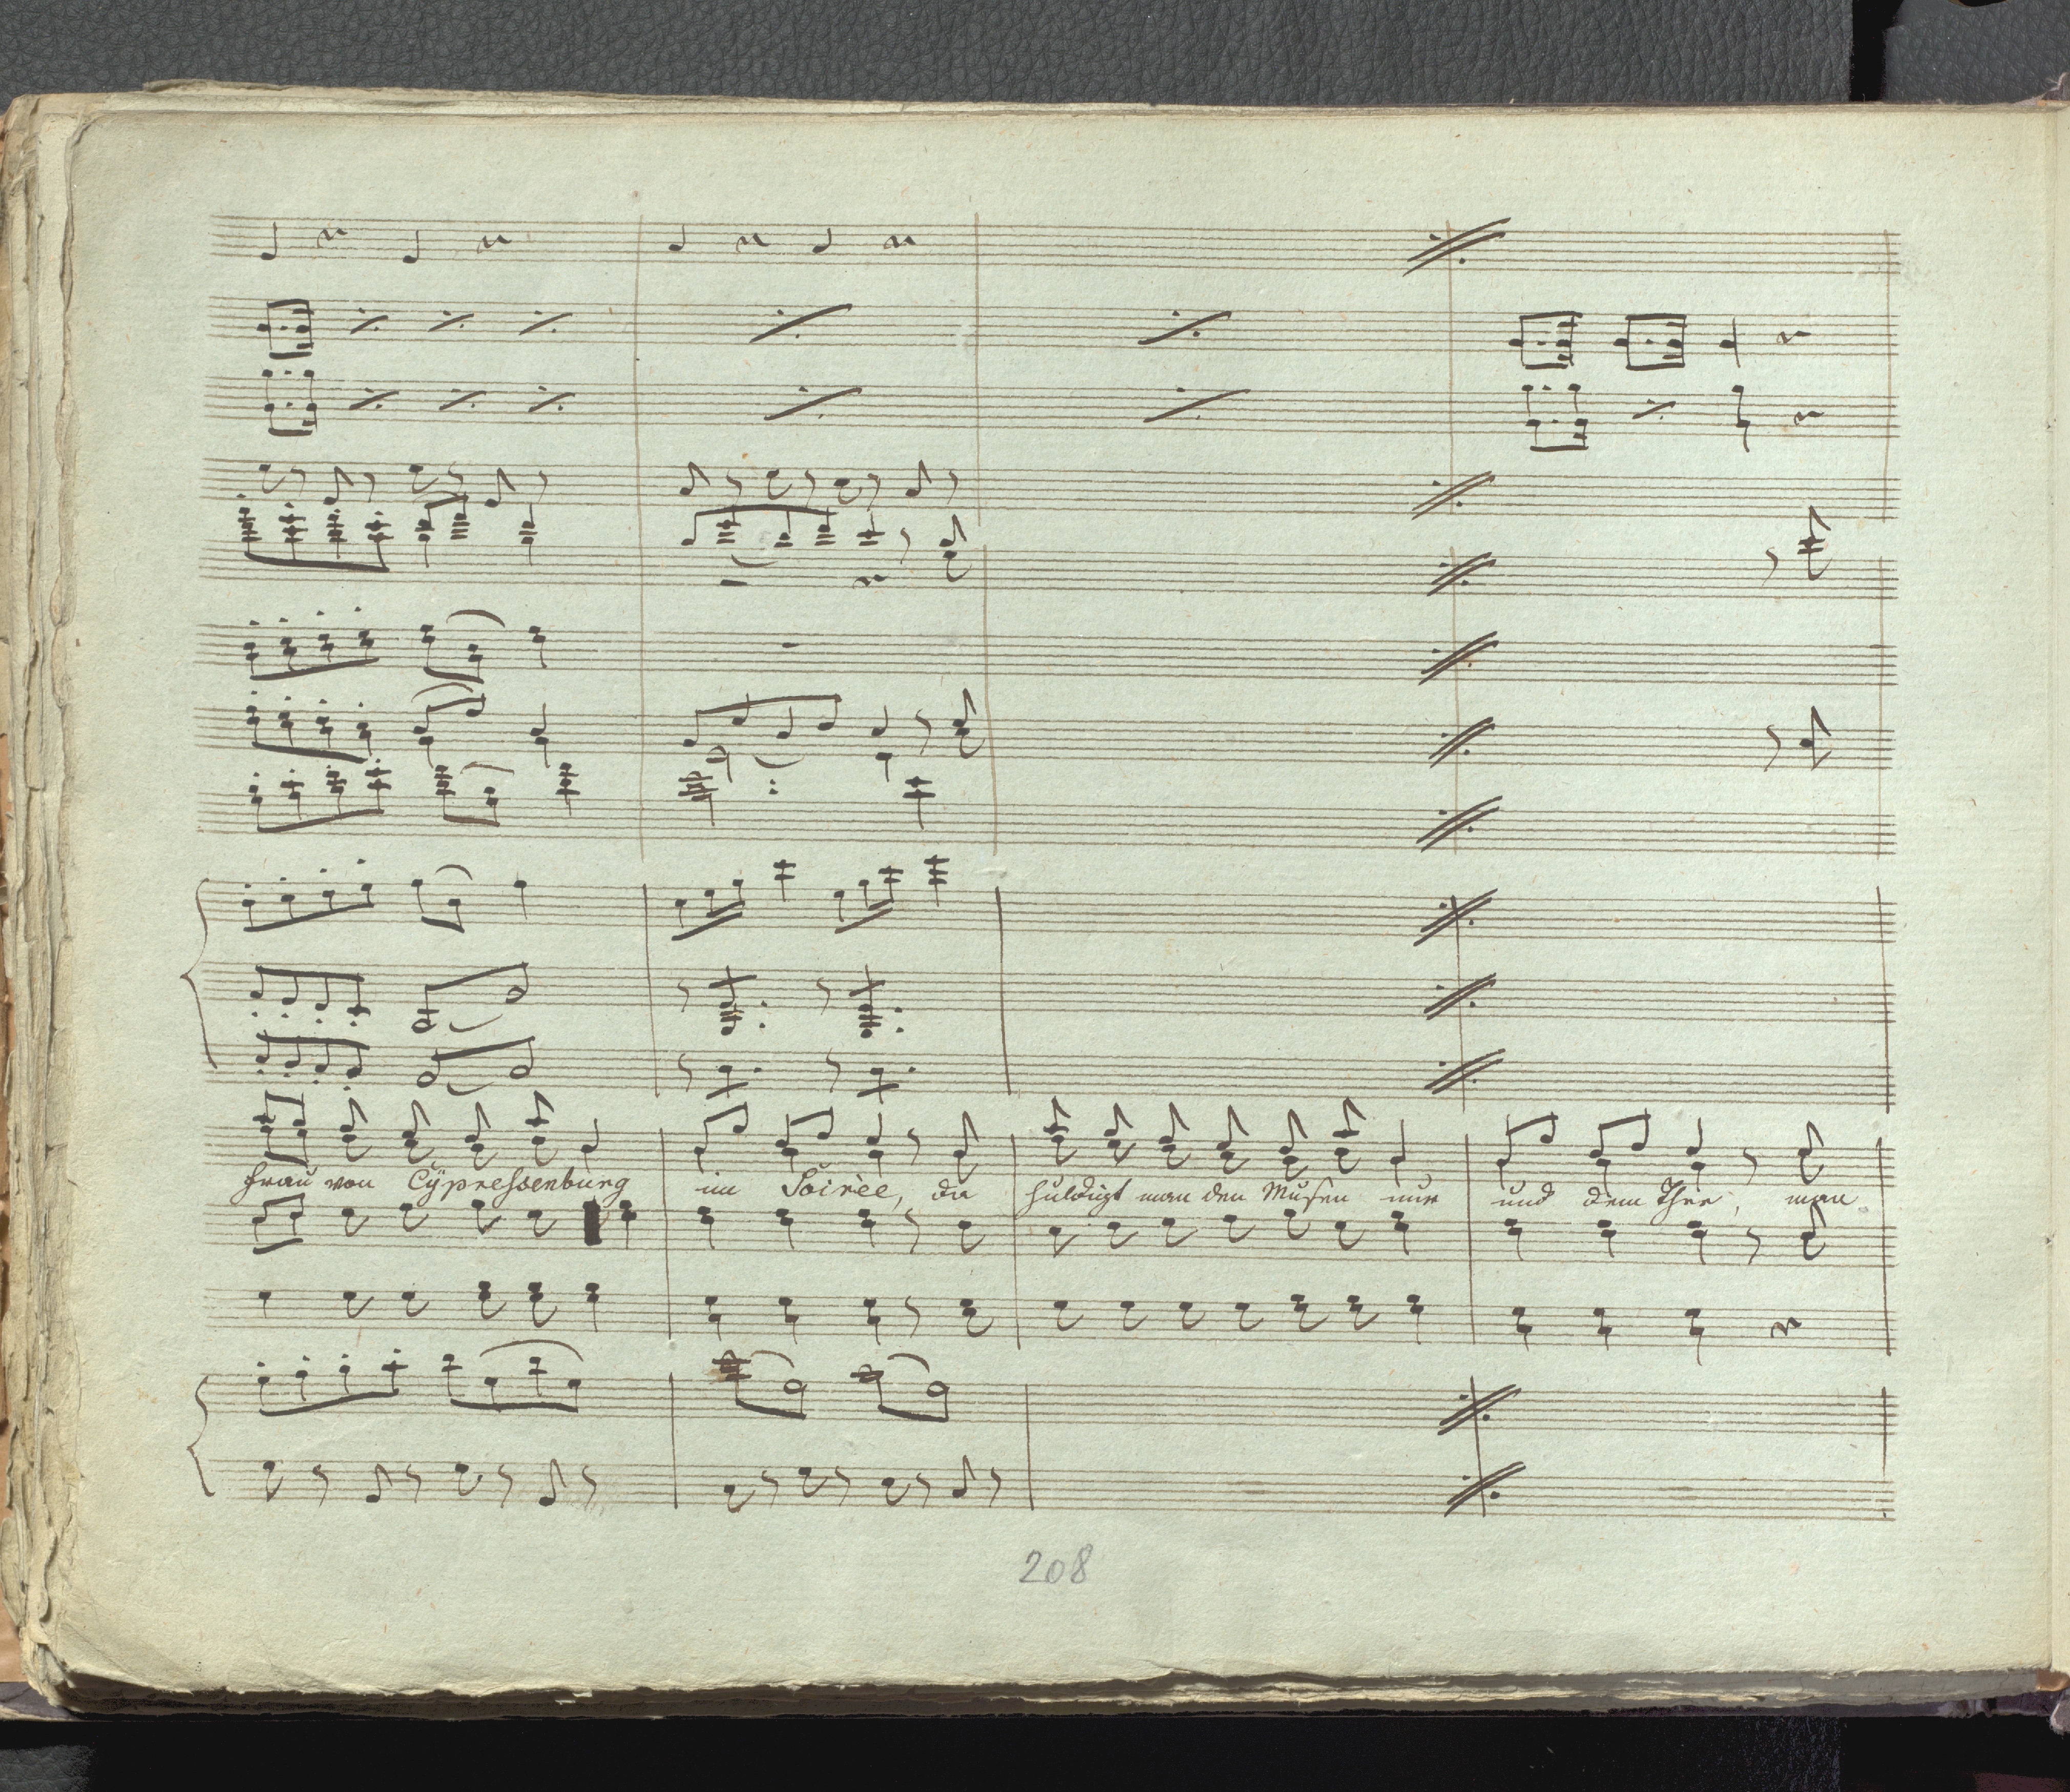 Frau von Cÿpressenburg im Soirèe, da huldigt man den Musen nur und dem Thee, man
208